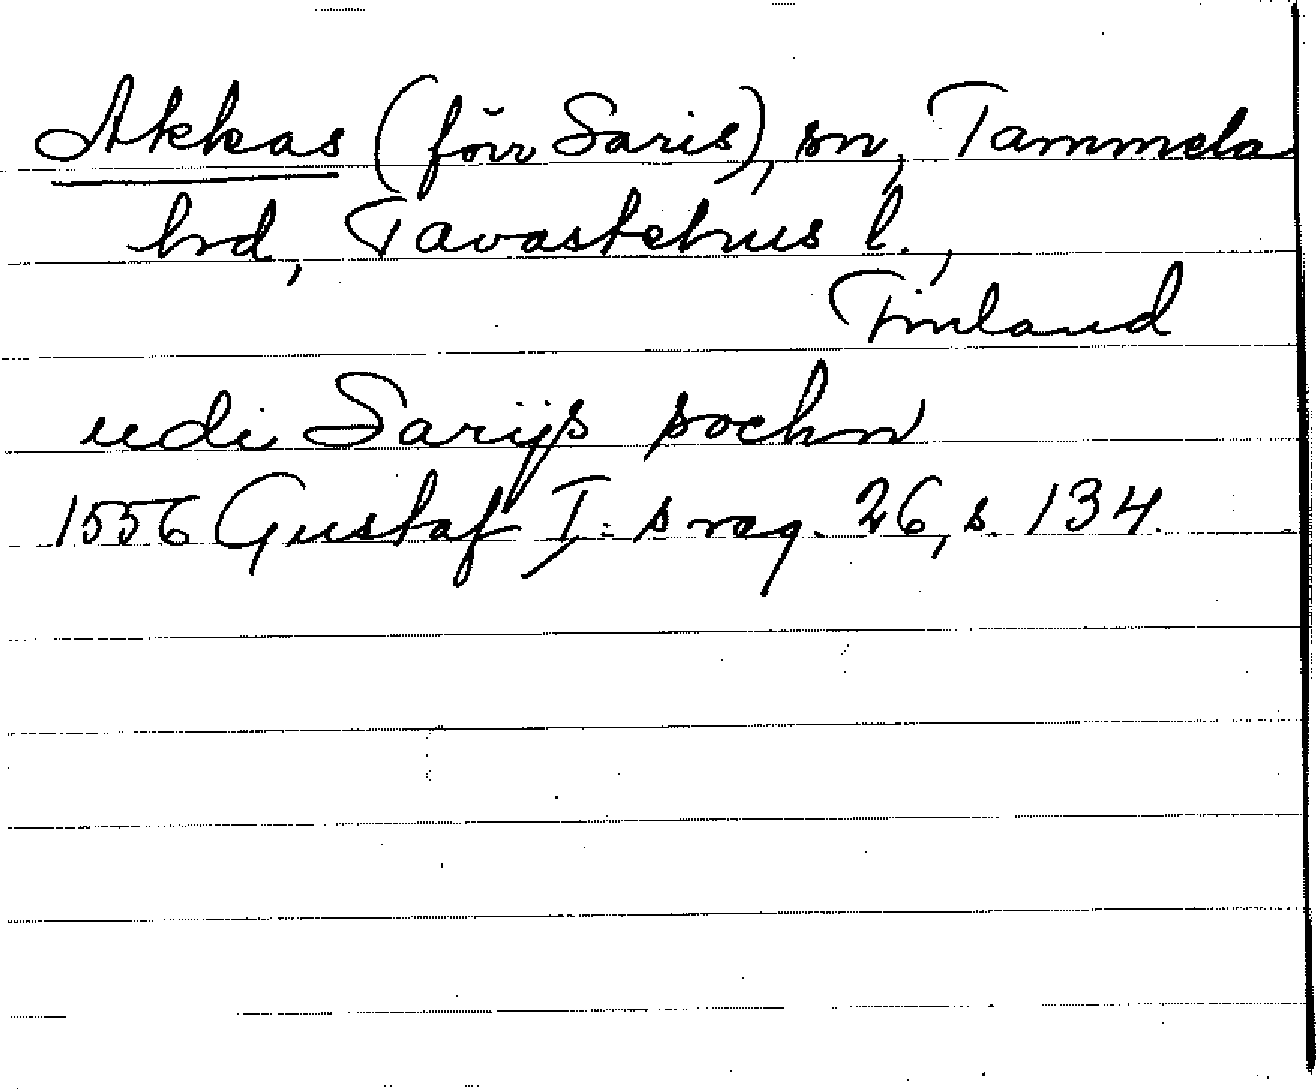 Akkas (förr Saris), sn, Tammela
hrd, Tavastehus l.,
Finland
udi Sarijs sochn
1556 Gustaf I:s reg. 26, s. 134.